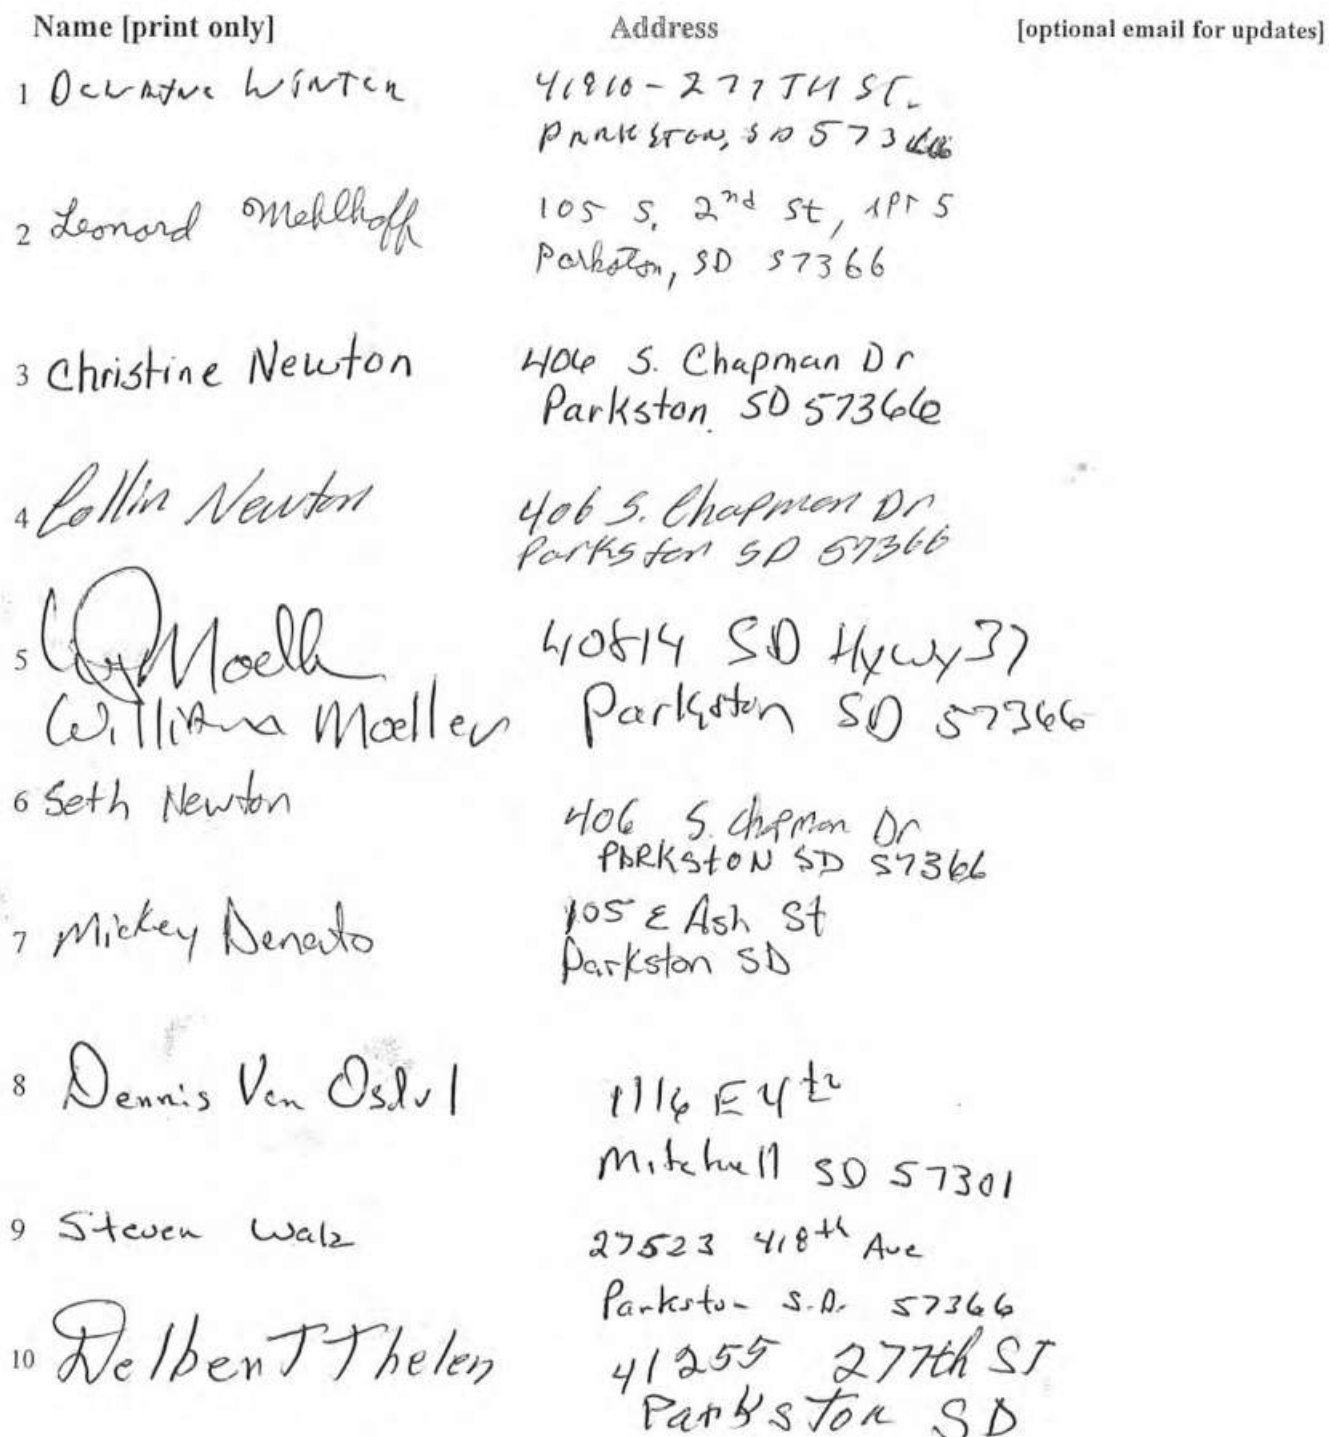 Name [print only] Address [optional email for updates]
1 Delwayne Winter 41910 - 277TH ST.
PARKSTON, SD 57366
2 Leonard Mehlhoff 105 S. 2nd St, APT 5
Parkston, SD 57366
3 Christine Newton 406 S. Chapman Dr
Parkston SD 57366
4 Collin Newton 406 S. Chapman Dr
Parkston SD 57366
5 Moelle 40814 SD Hywy 37
William Moeller Parkston SD 57366
6 Seth Newton 406 S. Chapman Dr
PARKSTON SD 57366
7 Mickey Denato 105 E Ash St
Parkston SD
8 Dennis Van 1116 E 4th
Mitchell SD 57301
9 Steven Walz 27523 418th Ave
Parkston S.D. 57366
10 Delbert Thelen 41255 277th ST
Parkston SD